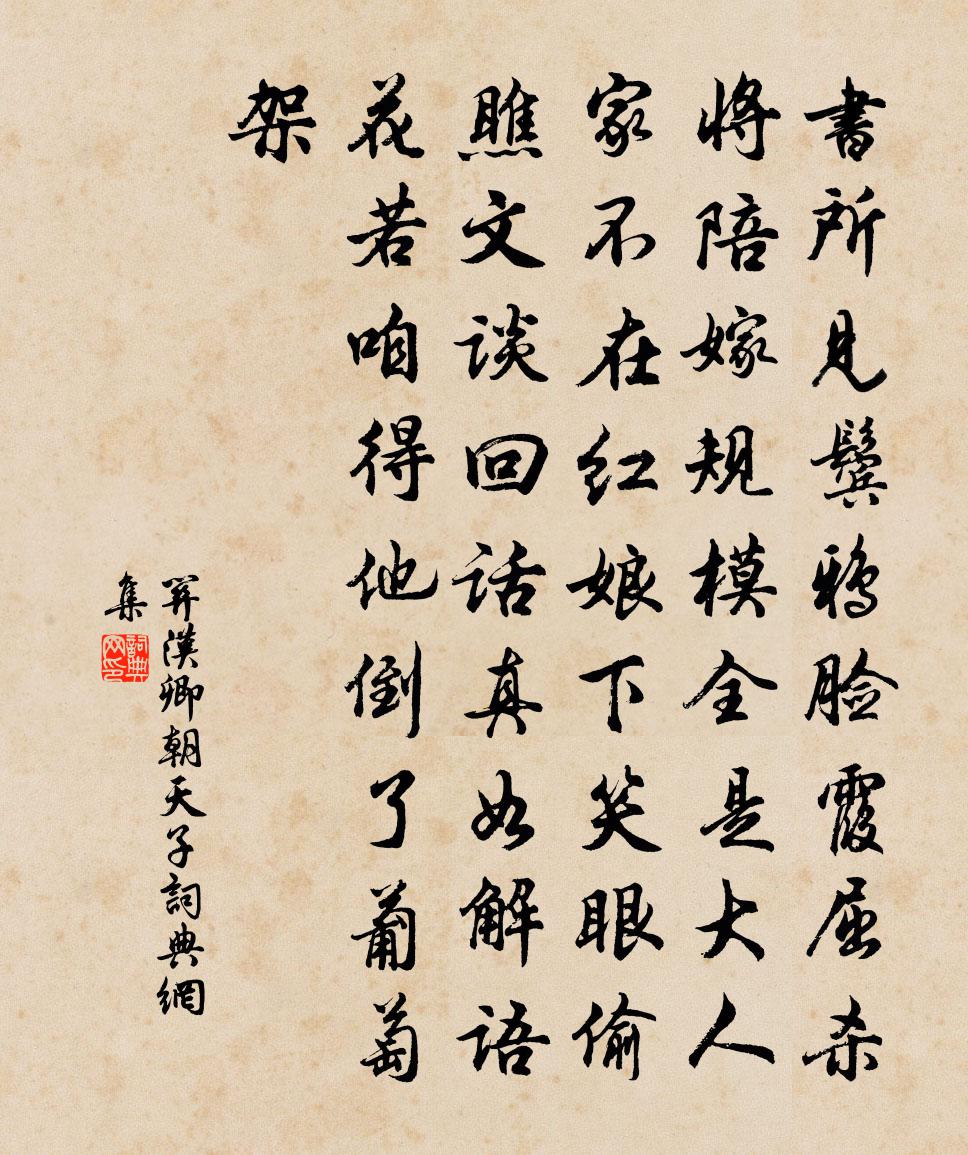 書所见鬓鸦脸霞屈杀
将陪嫁规模全是大人
家不在红娘下笑眼偷
瞧文谈回话真如解语
花若咱得他倒了葡萄
架
關漢卿朝天子詞典網
集
詞典网印